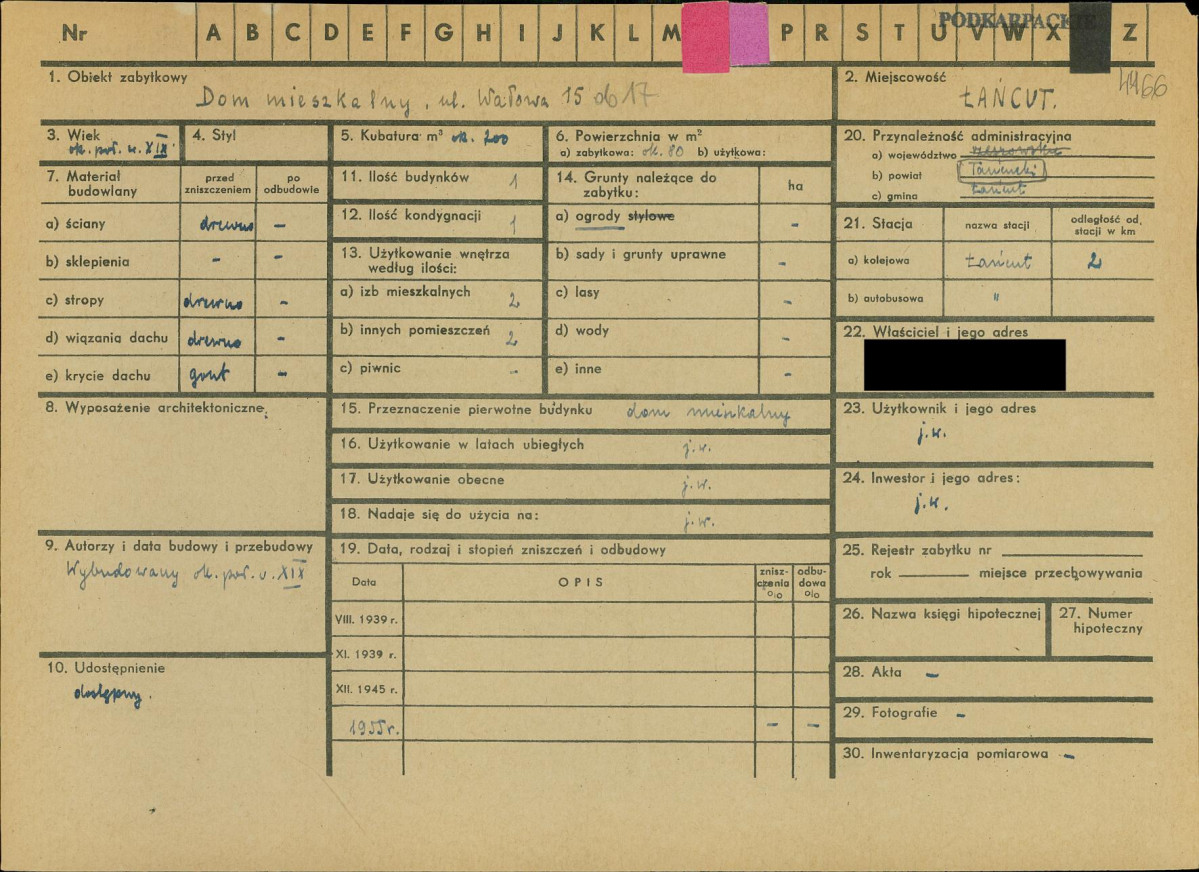 PODKARPACKIE
Nr A B C D E F G H I J K L M P R S T U V W X Z
4466
1. Obiekt zabytkowy
Dom mieszkalny, ul. Wałowa 15 ob 17
2. Miejscowość
ŁAŃCUT.
3. Wiek
ok. poł. w. XIX
4. Styl
5. Kubatura m³ ok. 200
6. Powierzchnia w m²
a) zabytkowa: ok. 80 b) użytkowa:
7. Materiał budowlany
przed zniszczeniem
po odbudowie
a) ściany drewno -
b) sklepienia - -
c) stropy drewno -
d) wiązania dachu drewno -
e) krycie dachu gont -
8. Wyposażenie architektoniczne:
9. Autorzy i data budowy i przebudowy
Wybudowany ok. poł. w. XIX
10. Udostępnienie
dostępny.
11. Ilość budynków 1
12. Ilość kondygnacji 1
13. Użytkowanie wnętrza
według ilości:
a) izb mieszkalnych 2
b) innych pomieszczeń 2
c) piwnic -
14. Grunty należące do
zabytku: ha
a) ogrody stylowe -
b) sady i grunty uprawne -
c) lasy -
d) wody -
e) inne -
15. Przeznaczenie pierwotne budynku dom mieszkalny
16. Użytkowanie w latach ubiegłych j.w.
17. Użytkowanie obecne j.w.
18. Nadaje się do użycia na: j.w.
19. Data, rodzaj i stopień zniszczeń i odbudowy
Data OPIS
znisz-
czenia
%
odbu-
dowa
%
VIII. 1939 r.
XI. 1939 r.
XII. 1945 r.
1955r. - -
20. Przynależność administracyjna
a) województwo rzeszowskie
b) powiat Łańcucki
c) gmina Łańcut
21. Stacja nazwa stacji
odległość od.
stacji w km
a) kolejowa Łańcut 2
b) autobusowa "
22. Właściciel i jego adres
23. Użytkownik i jego adres
j.w.
24. Inwestor i jego adres:
j.w.
25. Rejestr zabytku nr
rok miejsce przechowywania
26. Nazwa księgi hipotecznej
27. Numer
hipoteczny
28. Akta -
29. Fotografie -
30. Inwentaryzacja pomiarowa -